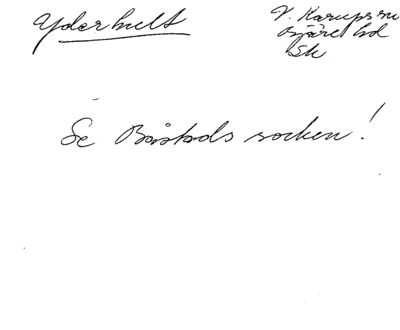 Yderhult
V. Karups sn
Bjäre hd
Sk
Se Båstads socken!